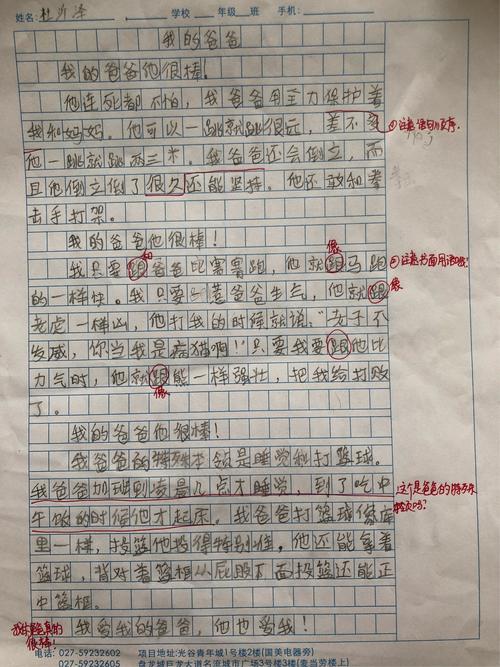 姓名: 杜沂泽 学校 年级 班 手机:
我的爸爸
我的爸爸他很棒。
他连死都不怕，我爸爸用全力保护着
我和妈妈。他可以一跳就跳很远，差不多
他一跳就跳两三米。我爸爸还会倒立，而
①注意语句顺序.
且他倒立倒了很久还能坚持。他还敢和拳
击手打架。
我的爸爸他很棒！
和 像
我只要跟爸爸比赛跑，他就跟马跑
②注意书面用语
的一样快。我只要惹爸爸生气，他就跟
像
老虎一样凶，他打我的时候就说："老子不
发威，你当我是病猫啊！"只要我要跟他比
力气时，他就跟熊一样强壮，把我给打败
像
了。
我的爸爸他很棒！
我爸爸的特殊本领是睡觉和打篮球。
我爸爸加班到凌晨几点才睡觉，到了吃中
这个是爸爸的特殊
本领吗?
午饭的时候他才起床。我爸爸打篮球像库
里一样，投篮他投得特别准。他还能拿着
篮球，背对着篮框从屁股下面投篮还能正
中篮框。
我爸爸真的
很棒!
我爱我的爸爸，他也爱我！
027-59232602 项目地址:光谷青年城1号楼2楼(国美电器旁)
027-59232605 盘龙城巨龙大道名流城市广场3号楼3楼(麦当劳楼上)